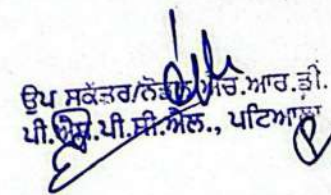 ਉਪ ਸਕੱਤਰ/ਨੋਡਲ ਐਚ.ਆਰ.ਡੀ.
ਪੀ.ਐਸ.ਪੀ.ਸੀ.ਐਲ., ਪਟਿਆਲਾ